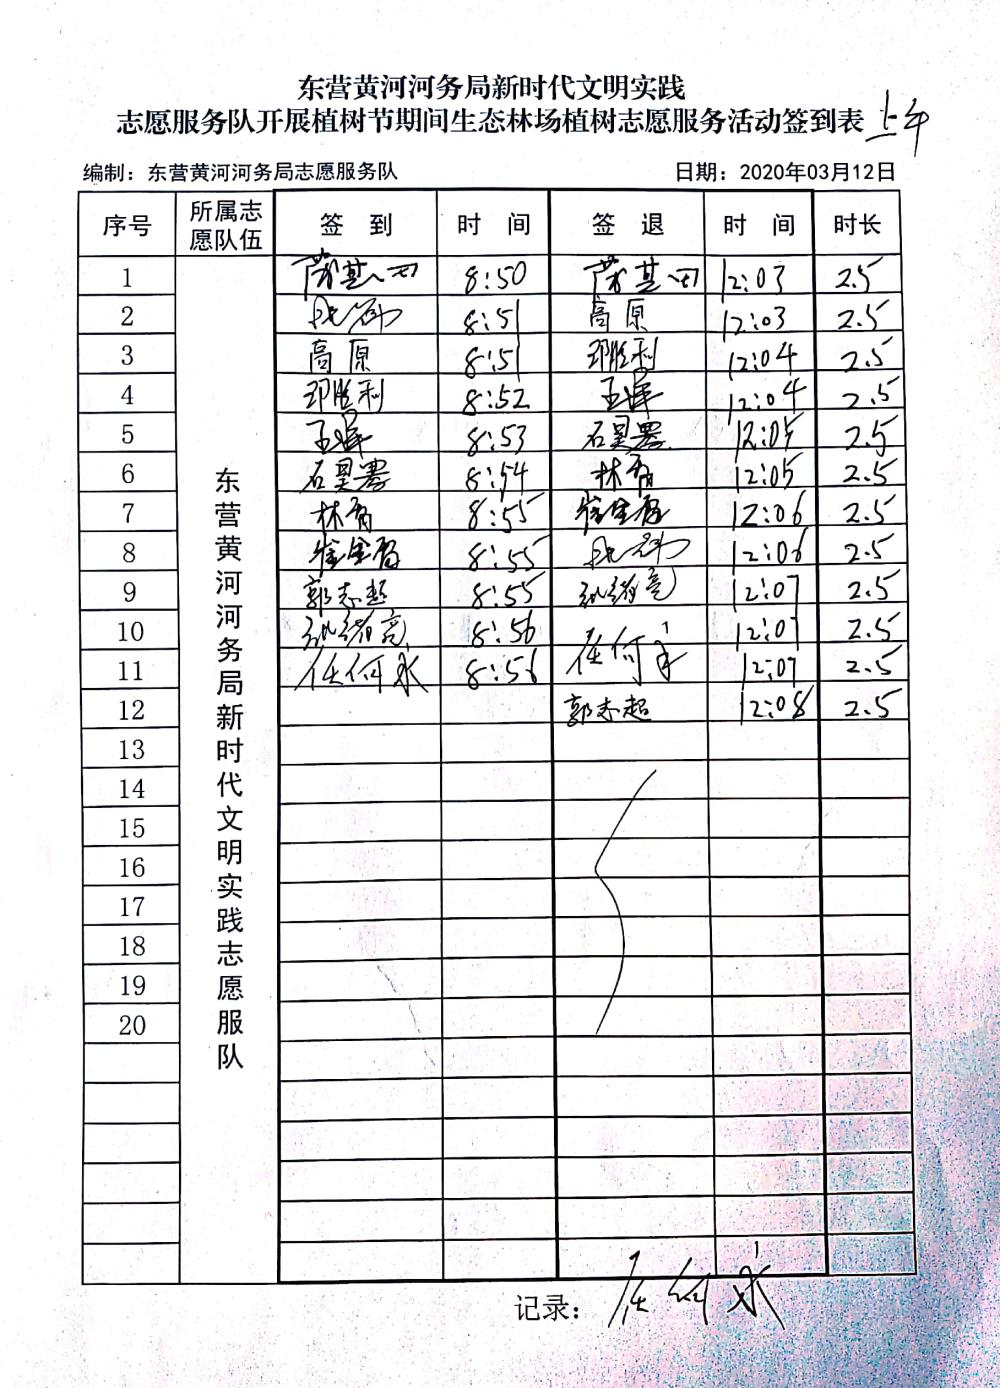 东营黄河河务局新时代文明实践
志愿服务队开展植树节期间生态林场植树志愿服务活动签到表 上午
编制：东营黄河河务局志愿服务队 日期：2020年03月12日
序号 所属志愿队伍 签 到 时 间 签 退 时 间 时长
东营黄河河务局新时代文明实践志愿服务队
1 8:50 12:03 2.5
2 8:51 高原 12:03 2.5
3 高原 8:51 邓胜利 12:04 2.5
4 邓胜利 8:52 12:04 2.5
5 8:53 12:05 2.5
6 8:54 12:05 2.5
7 8:55 12:06 2.5
8 8:55 12:06 2.5
9 郭志超 8:55 12:07 2.5
10 8:56 任何 12:07 2.5
11 任何 8:56 12:07 2.5
12 郭志超 12:08 2.5
13
14
15
16
17
18
19
20
记录： 任何